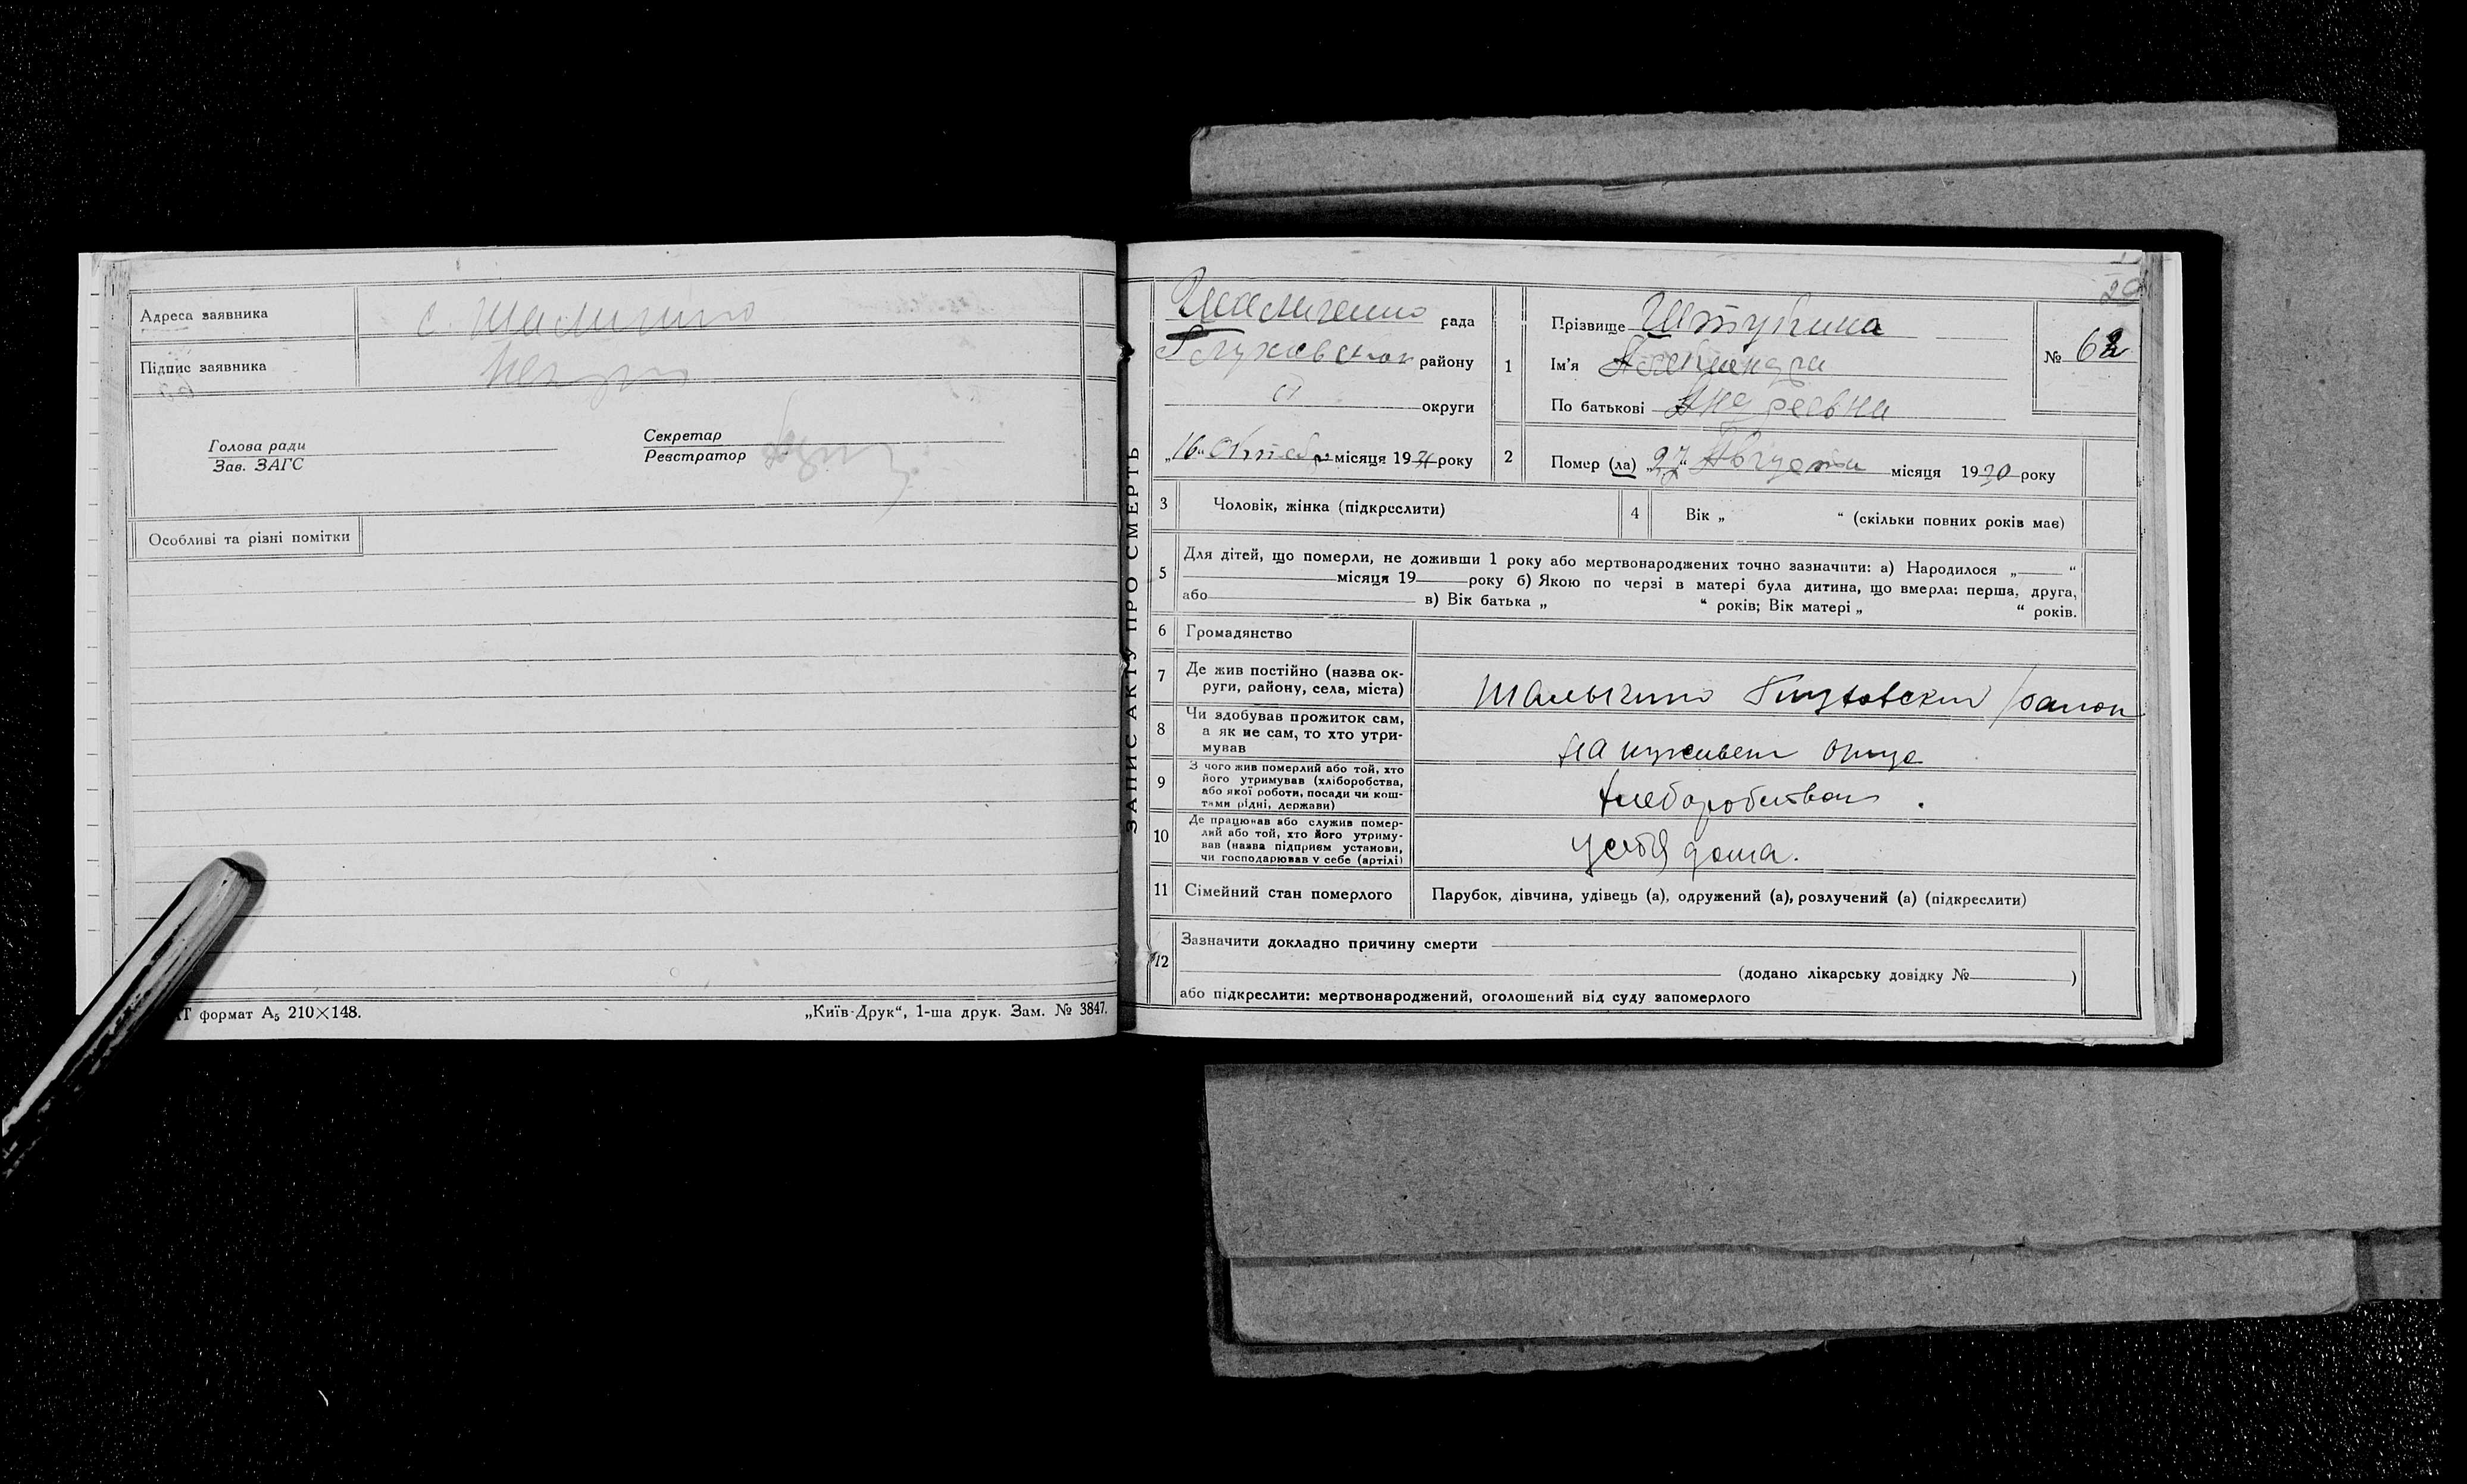 Адреса заявника с. Шалигино
Підпис заявника
Голова ради
Зав. ЗАГС
Секретар
Реєстратор
Особливі та різні помітки
формат А5 210×148.
„Київ-Друк“, 1-ша друк. Зам. № 3847.
ЗАПИС АКТУ ПРО СМЕРТЬ
рада
району
округи
„16“ місяця 19 року
1 Прізвище Штукина
Ім'я Александра
По батькові Андреевна
№ 62
2 Помер (ла) „27“ Августа місяця 1930 року
3 Чоловік, жінка (підкреслити)
4 Вік „ “ (скільки повних років має)
5 Для дітей, що померли, не доживши 1 року або мертвонароджених точно зазначити: а) Народилося „ “
місяця 19 року б) Якою по черзі в матері була дитина, що вмерла: перша, друга,
або в) Вік батька „ “ років; Вік матері „ “ років.
6 Громадянство
7 Де жив постійно (назва ок-
руги, району, села, міста)
Шалыгино Глуховский район
8 Чи здобував прожиток сам,
а як не сам, то хто утри-
мував
на иждивен отца
9 З чого жив померлий або той, хто
його утримував (хліборобства,
або якої роботи, посади чи кош-
тами рідні, держави)
хлеборобством.
10 Де працював або служив помер-
лий або той, хто його утриму-
вав (назва підприєм установи,
чи господарював у себе (артілі)
у себя дома.
11 Сімейний стан померлого
Парубок, дівчина, удівець (а), одружений (а), розлучений (а) (підкреслити)
12 Зазначити докладно причину смерти
(додано лікарську довідку № )
або підкреслити: мертвонароджений, оголошений від суду запомерлого